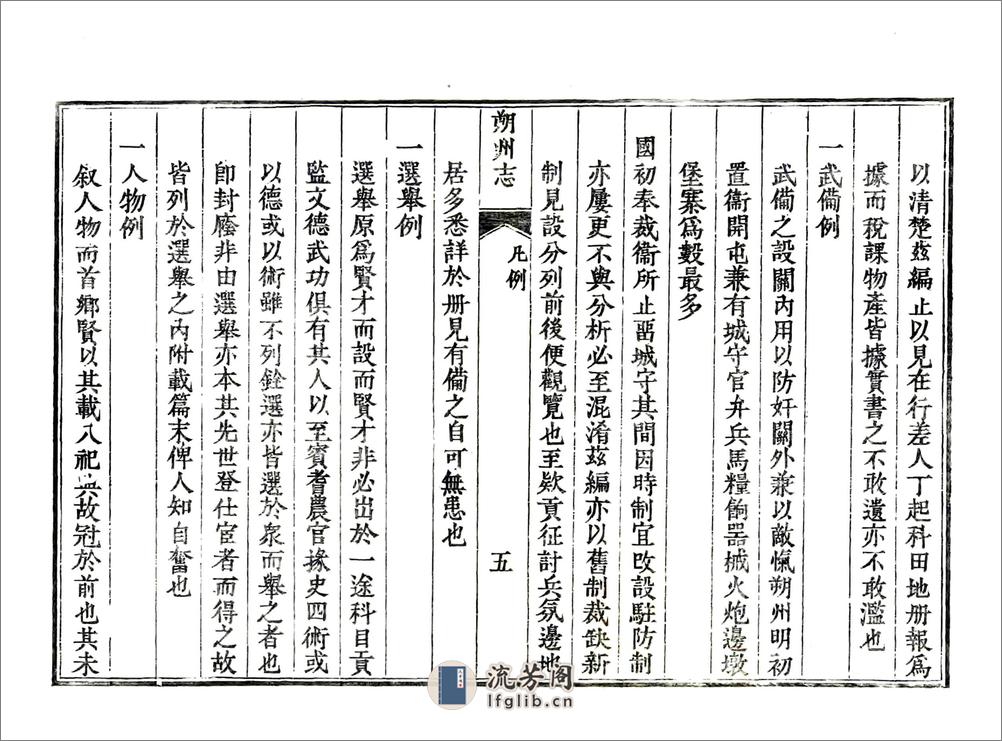 以清楚茲編止以見在行差人丁起科田地册報爲
據而稅課物產皆據實書之不敢遺亦不敢濫也
一武備例
武備之設關內用以防奸關外兼以敵愾朔州明初
置衞開屯兼有城守官弁兵馬糧餉器械火炮邊墩
堡寨爲數最多
國初奉裁衞所止畱城守其間因時制宜改設駐防制
亦屢更不與分析必至混淆茲編亦以舊制裁缺新
制見設分列前後便觀覽也至欵貢征討兵氛邊地
朔州志
凡例
五
居多悉詳於册見有備之自可無患也
一選舉例
選舉原爲賢才而設而賢才非必出於一途科目貢
監文德武功俱有其人以至賓耆農官掾史四術或
以德或以術雖不列銓選亦皆選於衆而舉之者也
卽封廕非由選舉亦本其先世登仕宦者而得之故
皆列於選舉之內附載篇末俾人知自奮也
一人物例
叙人物而首鄉賢以其載入祀典故冠於前也其未
流芳阁
lfglib.cn